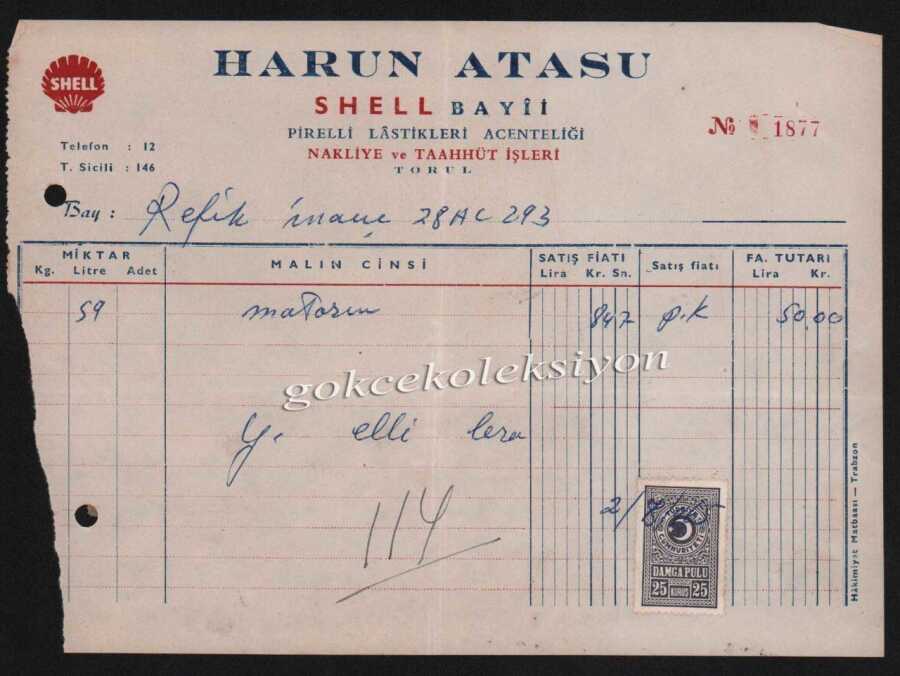 SHELL
HARUN ATASU
SHELL BAYÎİ
PİRELLİ LÂSTİKLERİ ACENTELİĞİ
NAKLİYE ve TAAHHÜT İŞLERİ
TORUL
Telefon : 12
T. Sicili : 146
№ 1877
Bay : Refik inanç 28 AC 293
MİKTAR
Kg. Litre Adet
MALIN CİNSİ
SATIŞ FİATI
Lira Kr. Sn.
Satış fiatı
FA. TUTARI
Lira Kr.
59 matorin 847 p.k 50.00
gokcekoleksiyon
Y. elli lera
114
2/
TÜRKİYE
CUMHURİYETİ
DAMGA PULU
25 KURUŞ 25
Hâkimiyet Matbaası — Trabzon